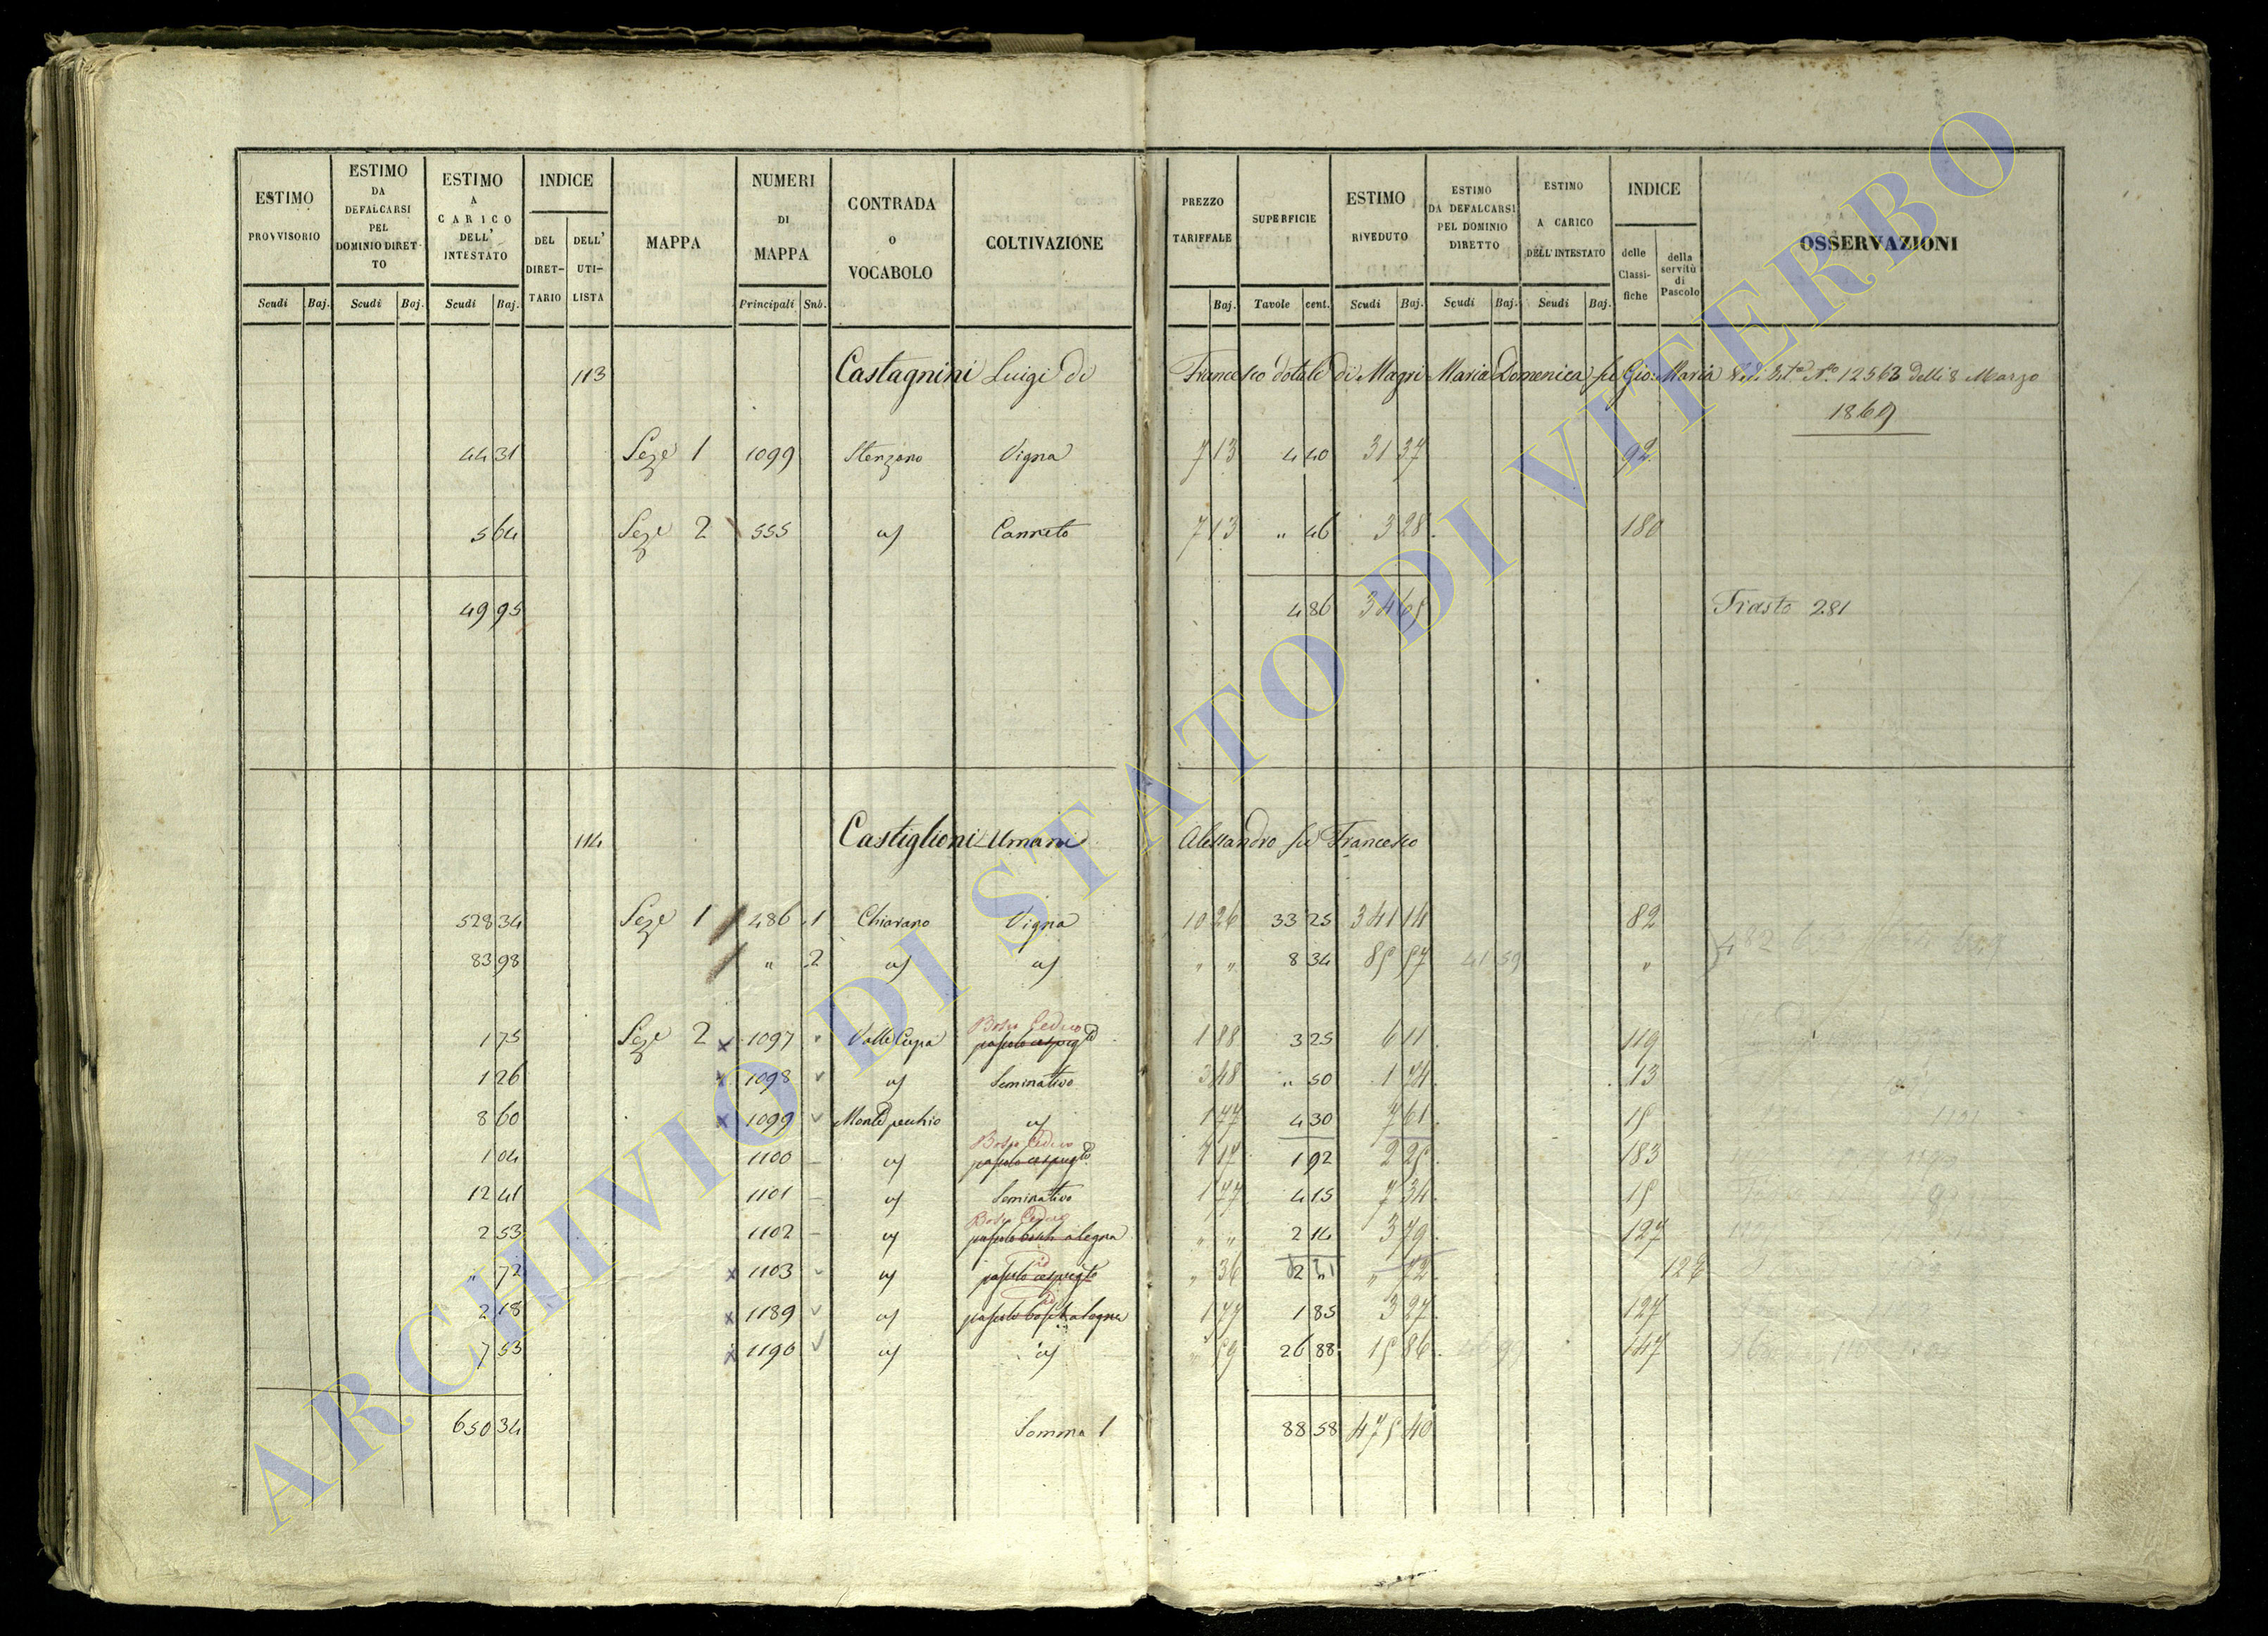 ESTIMO PROVVISORIO
ESTIMO DA DEFALCARSI PEL DOMINIO DIRETTO
ESTIMO A CARICO DELL' INTESTATO
INDICE
DEL DIRETTARIO
DELL' UTILISTA
MAPPA
NUMERI DI MAPPA
CONTRADA O VOCABOLO
COLTIVAZIONE
PREZZO TARIFFALE
SUPERFICIE
ESTIMO RIVEDUTO
ESTIMO DA DEFALCARSI PEL DOMINIO DIRETTO
ESTIMO A CARICO DELL'INTESTATO
INDICE
delle Classifiche
della servitù di Pascolo
OSSERVAZIONI
Scudi Baj. Scudi Baj. Scudi Baj. Principali Snb. Baj. Tavole cent. Scudi Baj. Scudi Baj. Scudi Baj.
113 Castagnini Luigi di Francesco dotale di Magri Maria Domenica fu Gio: Maria N.° 12563 delli 8 Marzo
1869
44 31 Seze 1 1099 Stenzano Vigna 7 13 4 40 31 37 92
5 64 Seze 2 555 Canneto 7 13 " 46 3 28 180
49 95 4 86 34 65 Trasto 281
114 Castiglioni Umani Alessandro fu Francesco
528 34 Seze 1 486 1 Chiarano Vigna 10 26 33 25 341 14 82
83 98 " 2 " " 8 34 85 57 41 59 "
1 75 Seze 2 1097 Valle Cupa Bosco Ceduo 1 88 3 25 6 11 119
1 26 1098 Seminativo 3 48 " 50 1 74 13
8 60 1099 Monte pecchio 1 77 4 30 7 61 15
1 04 1100 Bosco Ceduo 1 17 1 92 2 25 183
12 41 1101 Seminativo 1 77 4 15 7 34 15
2 53 1102 Bosco Ceduo " " 2 14 3 79 127
" 72 1103 " 36 " 72 128
2 18 1189 1 77 1 85 3 27 127
7 53 1190 " 59 26 88 15 86 147
650 34 Somma 1 88 58 475 40
ARCHIVIO DI STATO DI VITERBO